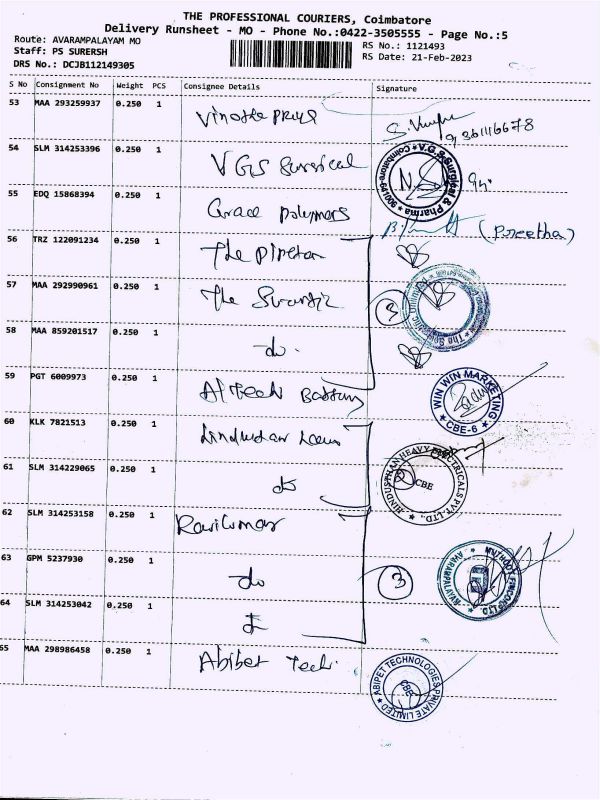 THE PROFESSIONAL COURIERS, Coimbatore
Delivery Runsheet - MO - Phone No.:0422-3505555 - Page No.:5
Route: AVARAMPALAYAM MO
Staff: PS SURERSH
DRS No.: DCJB112149305
RS No.: 1121493
RS Date: 21-Feb-2023
S No Consignment No Weight PCS Consignee Details Signature
53 MAA 293259937 0.250 1
54 SLM 314253396 0.250 1 VGS Surgical
55 EDQ 15868394 0.250 1 Grace polymers (Preetha)
56 TRZ 122091234 0.250 1 The
57 MAA 292990961 0.250 1 The 3
58 MAA 859201517 0.250 1 do.
59 PGT 6009973 0.250 1
WIN WIN MARKETING
CBE-6
60 KLK 7821513 0.250 1
HINDUSTHAN HEAVY ELECTRICALS PVT. LTD.,
CBE
61 SLM 314229065 0.250 1 do
62 SLM 314253158 0.250 1 Ravikumar
63 GPM 5237930 0.250 1 do 3
64 SLM 314253042 0.250 1
65 MAA 298986458 0.250 1 Abipet Tech.
ABIPET TECHNOLOGIES PRIVATE LIMITED
CBE
V.G.S Surgical & Pharma
Coimbatore-